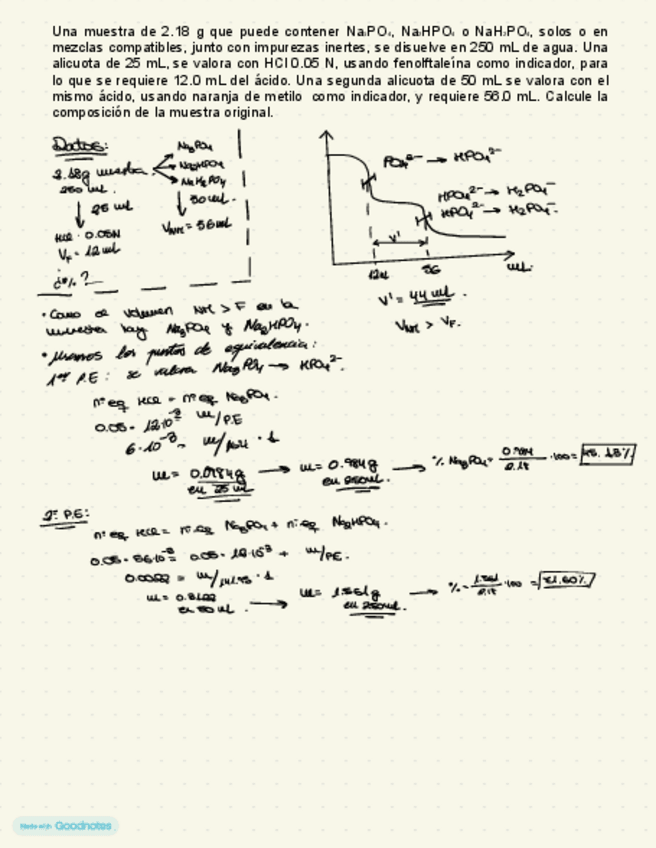 Una muestra de 2.18 g que puede contener Na₃PO₄, Na₂HPO₄ o NaH₂PO₄, solos o en
mezclas compatibles, junto con impurezas inertes, se disuelve en 250 mL de agua. Una
alicuota de 25 mL, se valora con HCl 0.05 N, usando fenolftaleína como indicador, para
lo que se requiere 12.0 mL del ácido. Una segunda alicuota de 50 mL se valora con el
mismo ácido, usando naranja de metilo como indicador, y requiere 56.0 mL. Calcule la
composición de la muestra original.
Datos:
Na₃PO₄
2.18g muestra
Na₂HPO₄
NaH₂PO₄
250 ml.
25 ml
50 ml.
HCl 0.05N
V_F = 12 ml
V_NM = 56 ml
¿%?
PO₄³⁻ → HPO₄²⁻
HPO₄²⁻ → H₂PO₄⁻
HPO₄²⁻ → H₂PO₄⁻.
V'
56
mL.
V' = 44 ml.
V_NM > V_F.
• Como el volumen NM > F en la
muestra hay Na₃PO₄ y Na₂HPO₄.
• Miramos los puntos de equivalencia:
1er P.E: se valora Na₃PO₄ → HPO₄²⁻.
nº eq HCl = nº eq Na₃PO₄.
0.05 · 12·10⁻³ m/P.E
6·10⁻³ = m/164 · 1
m = 0.0984g
en 25 ml
→ m = 0.984g
en 250ml.
→ % Na₃PO₄ = 0.984/2.18 · 100 = 45.13%
2º P.E:
nº eq HCl = nº eq Na₃PO₄ + nº eq Na₂HPO₄.
0.05 · 56·10⁻³ = 0.05 · 12·10⁻³ + m/PE.
0.0022 = m/141.98 · 1
m = 0.3122
en 50 ml.
→ m = 1.561g
en 250ml.
→ % = 1.561/2.18 · 100 = 71.60%
Made with Goodnotes